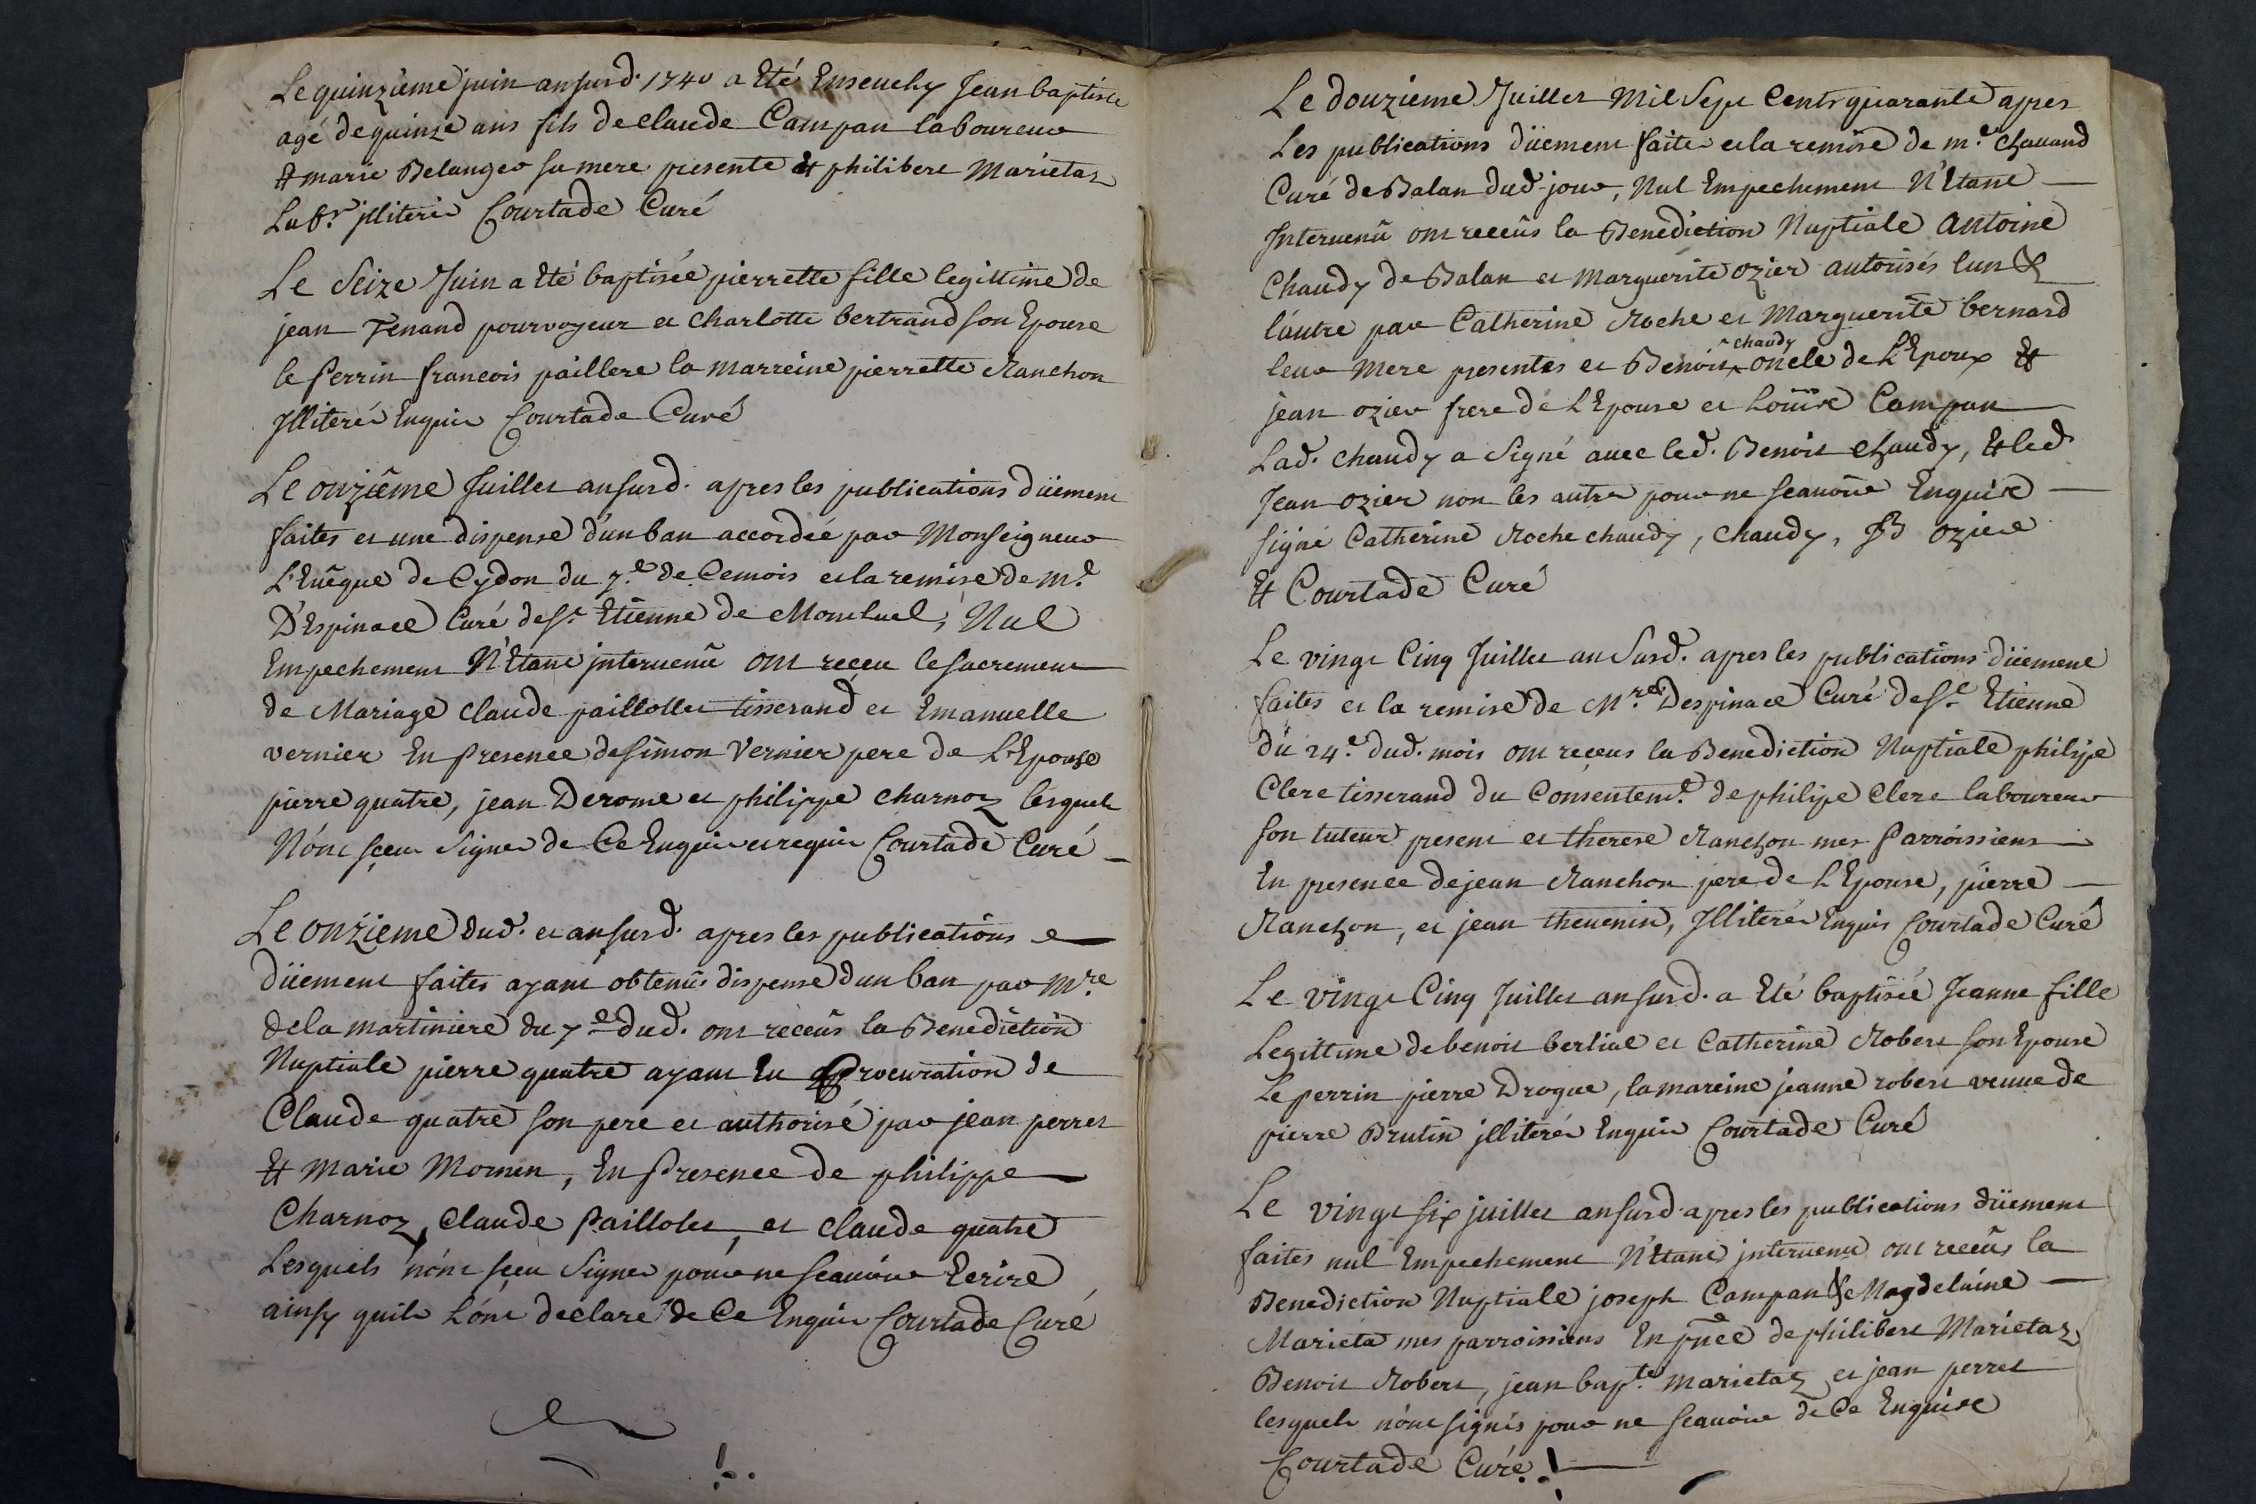 Le quinzieme juin an susd. 1740 a Eté Ensevely Jean baptiste
agé de quinze ans fils de claude Campan laboureur
Et marie Belanger sa mere presente Et philibert Marietaz
Labr. jlliteris Courtade Curé
Le Seize Juin a Eté baptisée pierrette fille legittime de
jean Tenand pourvoyeur et charlotte bertrand son Epouse
le Perrin francois paillere la marreine pierrette Ranchon
Jlliterés Enquis Courtade Curé
Le onziême Juillet an susd. apres les publications düement
faites et une dispense d'un ban accordée par Monseigneur
L'Evêque de Cydon du 7.e de Ce mois et la remise de m.e
D'Espinace Curé de St Etienne de Montluel, Nul
Empechement N'Etant jntervenû ont reçeu le sacrement
de Mariage claude paillollet tisserand et Emanuelle
vernier En Presence de simon Vernier pere de L'Epouse
pierre quatre, jean Derome et philippe charnoz lesquels
N'ont sçeu Signer de Ce Enquis et requis Courtade Curé
Le onzieme dud. et an susd. apres les publications
düement faites ayant obtenûs dispense d'un ban par Mre
de la martiniere du 7e dud. ont receûs la Benediction
Nuptiale pierre quatre ayant Eu Procuration de
Claude quatre son pere et authorisé par jean perret
Et Marie Momen, En Presence de philippe
Charnoz, Claude Paillolet, et claude quatre
Lesquels n'ont sçeu Signer pour ne scavoir Ecrire
ainsy quils L'ont declaré de Ce Enquis Courtade Curé
Le douzieme Juillet Mil Sept Cents quarante apres
Les publications düement faites et la remise de m.e Chavand
Curé de Balan dud. jour, Nul Empechement N'Etant
Jntervenû ont recûs la Benediction Nuptiale Antoine
Chaudy de Balan et Marguerite ozier autorisés l'un &
l'autre par Catherine Roche et Marguerite bernard
leur Mere presentes et Benoit chaudy oncle de L'Epoux Et
jean ozier frere de L'Epouse et Loüise Campan
Lad. chaudy a Signé avec led. Benoit chaudy, Et led.
Jean ozier non les autres pour ne scavoir Enquise
signé Catherine Roche chaudy, chaudy, JB ozier
Et Courtade Curé
Le vingt Cinq Juillet an Susd. apres les publications düement
faites et la remise de Mre Despinace Curé de St Etienne
du 24.e dud. mois ont reçeus la Benediction Nuptiale philipe
Clerc tisserand du Consentemt. de philipe Clerc laboureur
son tuteur present et therese Ranchon mes Parroissiens
En presence de jean Ranchon pere de L'Epouse, pierre
Ranchon, et jean thevenin, Jlliterés Enquis Courtade Curé
Le vingt Cinq Juillet an susd. a Eté baptisée Jeanne fille
Legittime de benoit berliat et Catherine Robert son Epouse
Le perrin pierre Drogue, la mareine jeanne robert veuve de
pierre Brutin jlliterés Enquis Courtade Curé
Le vingt six juillet an susd. apres les publications düement
faites nul Empechement N'Etant jntervenu ont recûs la
Benediction Nuptiale joseph Campan & Magdelaine
Marieta mes parroissiens En pnce de philibert Marietaz
Benoit Robert, jean bapte. marietaz, et jean perret
lesquels n'ont signés pour ne scavoir de Ce Enquise
Courtade Curé